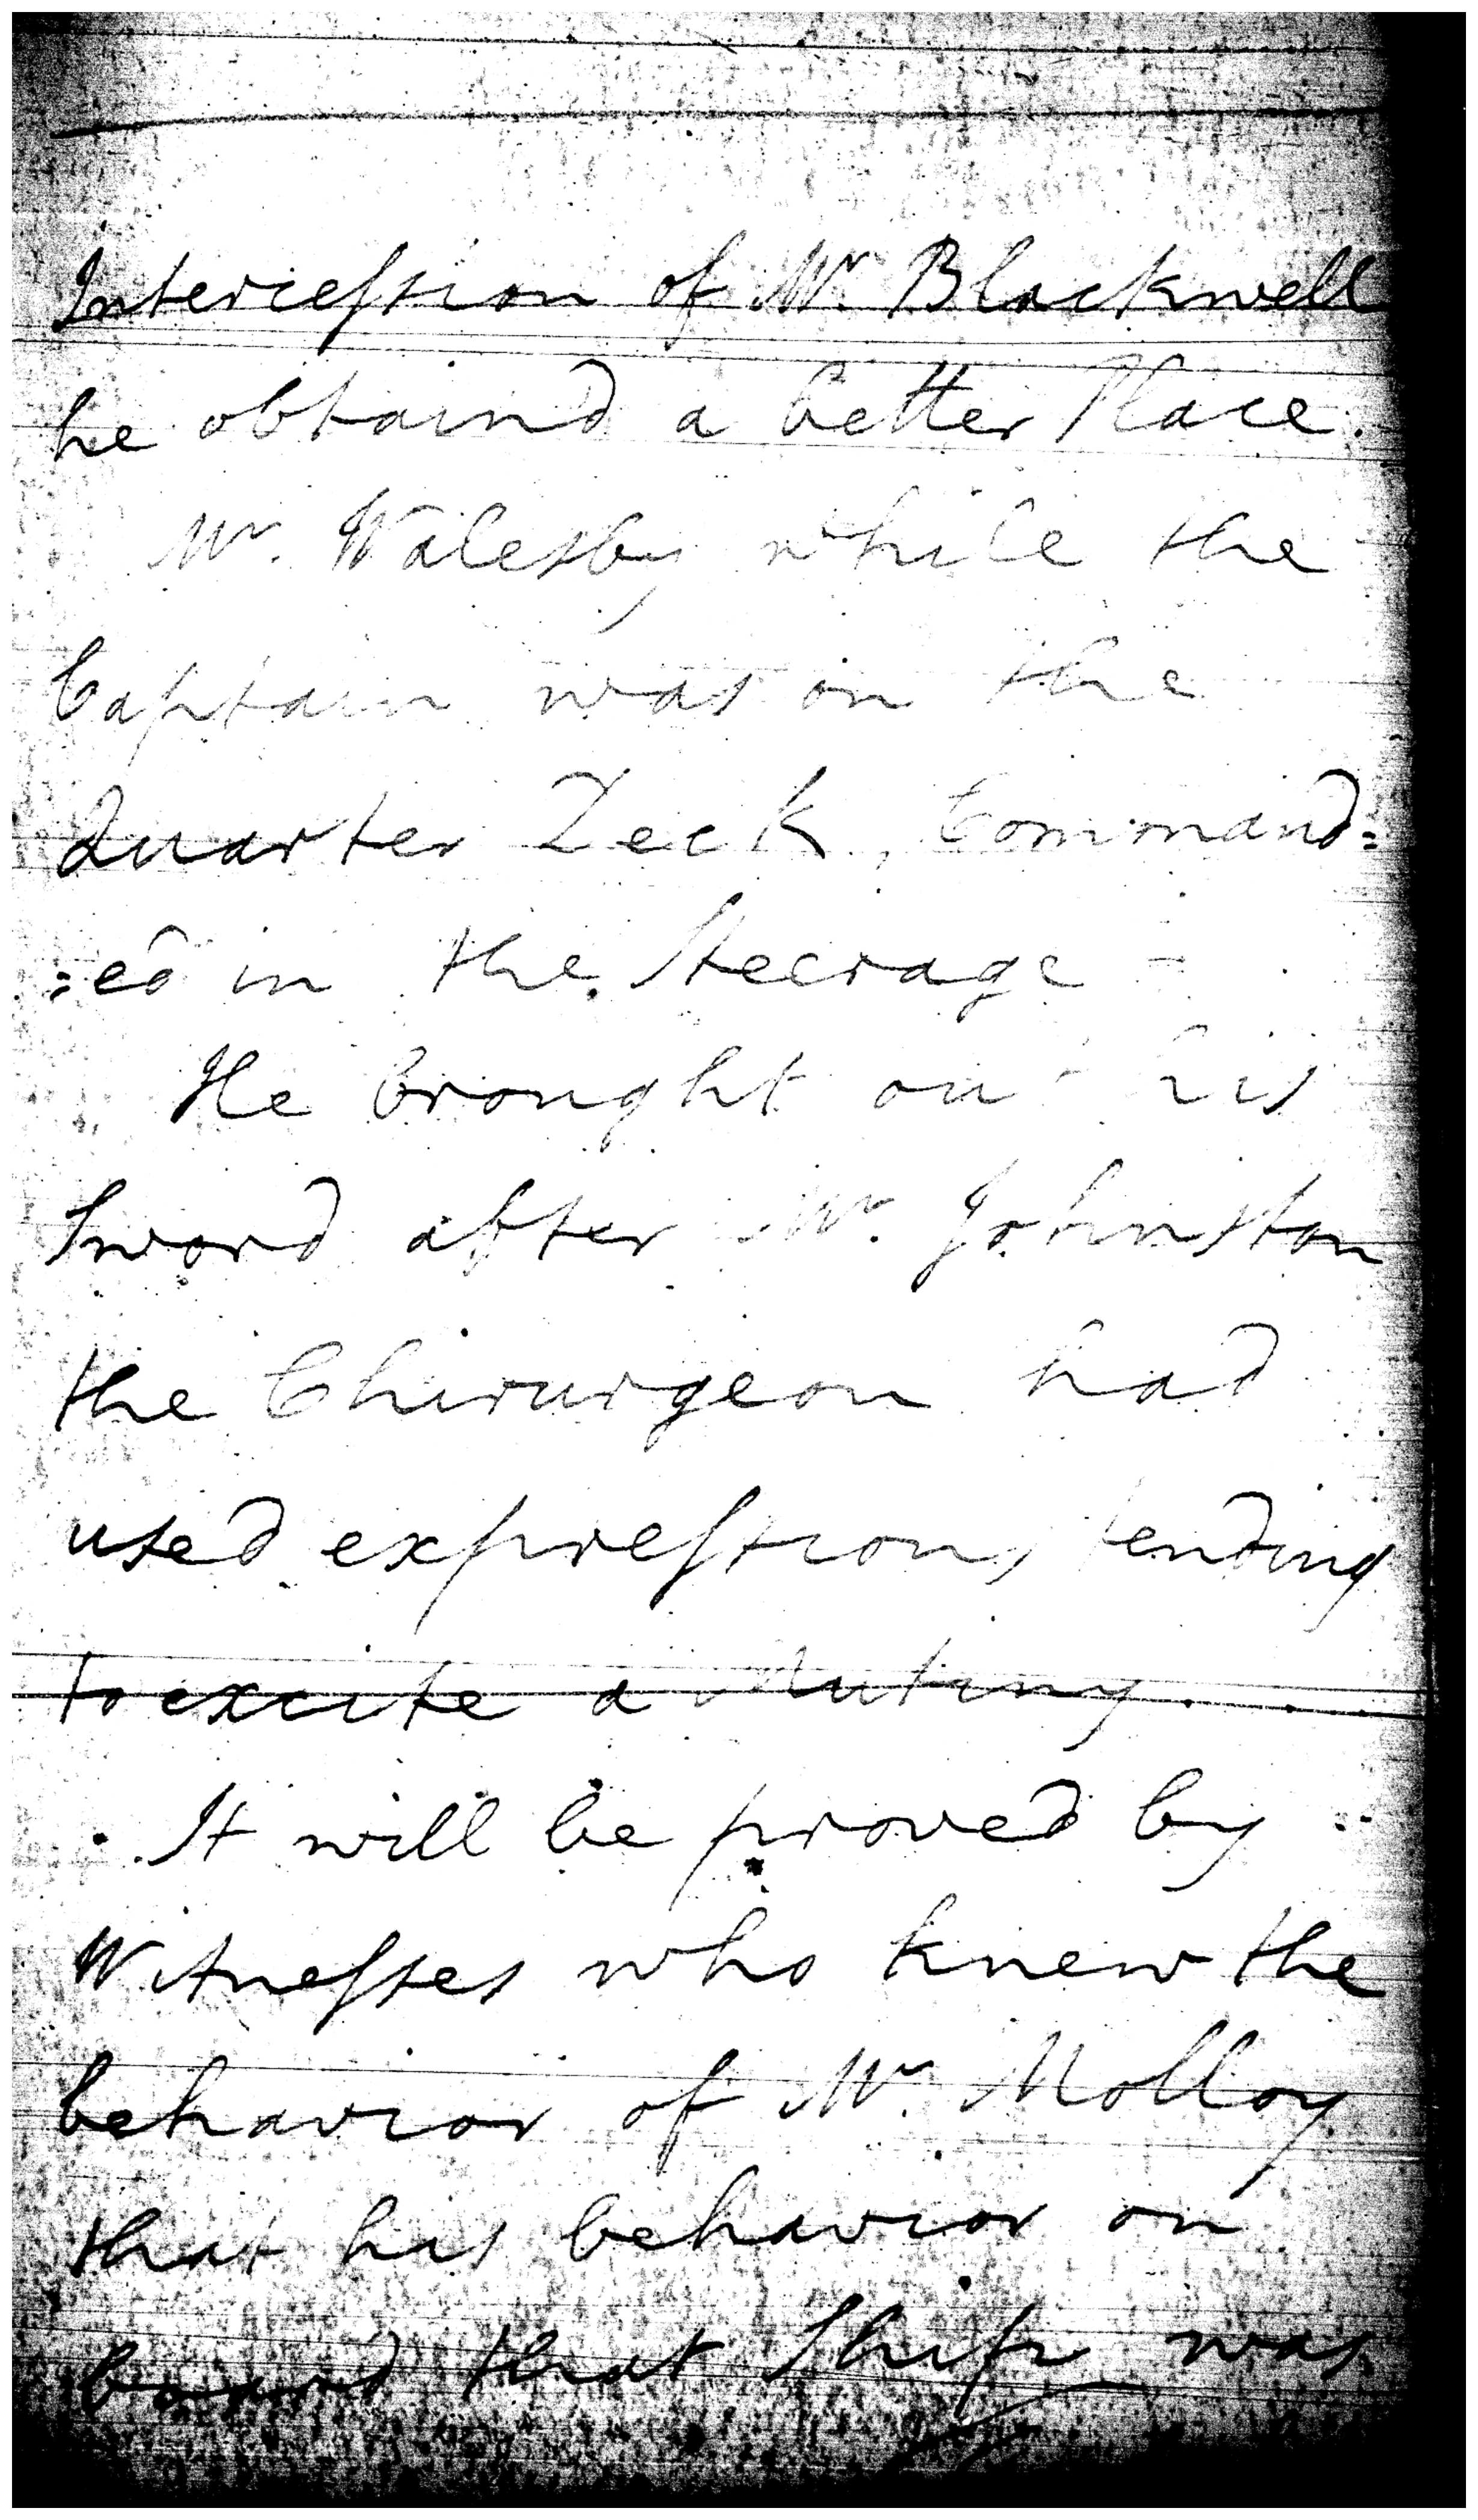 Interceſsion of Mr Blackwell
he obtaind a better Place.
Mr. Walesby while the
Captain was on the
Quarter Deck, Command=
=ed in the Steerage
He brought out his
Sword after Mr. Johnston
the Chirurgeon had
used expreſsions tending
to excite a Mutiny.
It will be proved by
Witneſses who knew the
behavior of Mr. Molloy
that his behavior on
board that Ship was